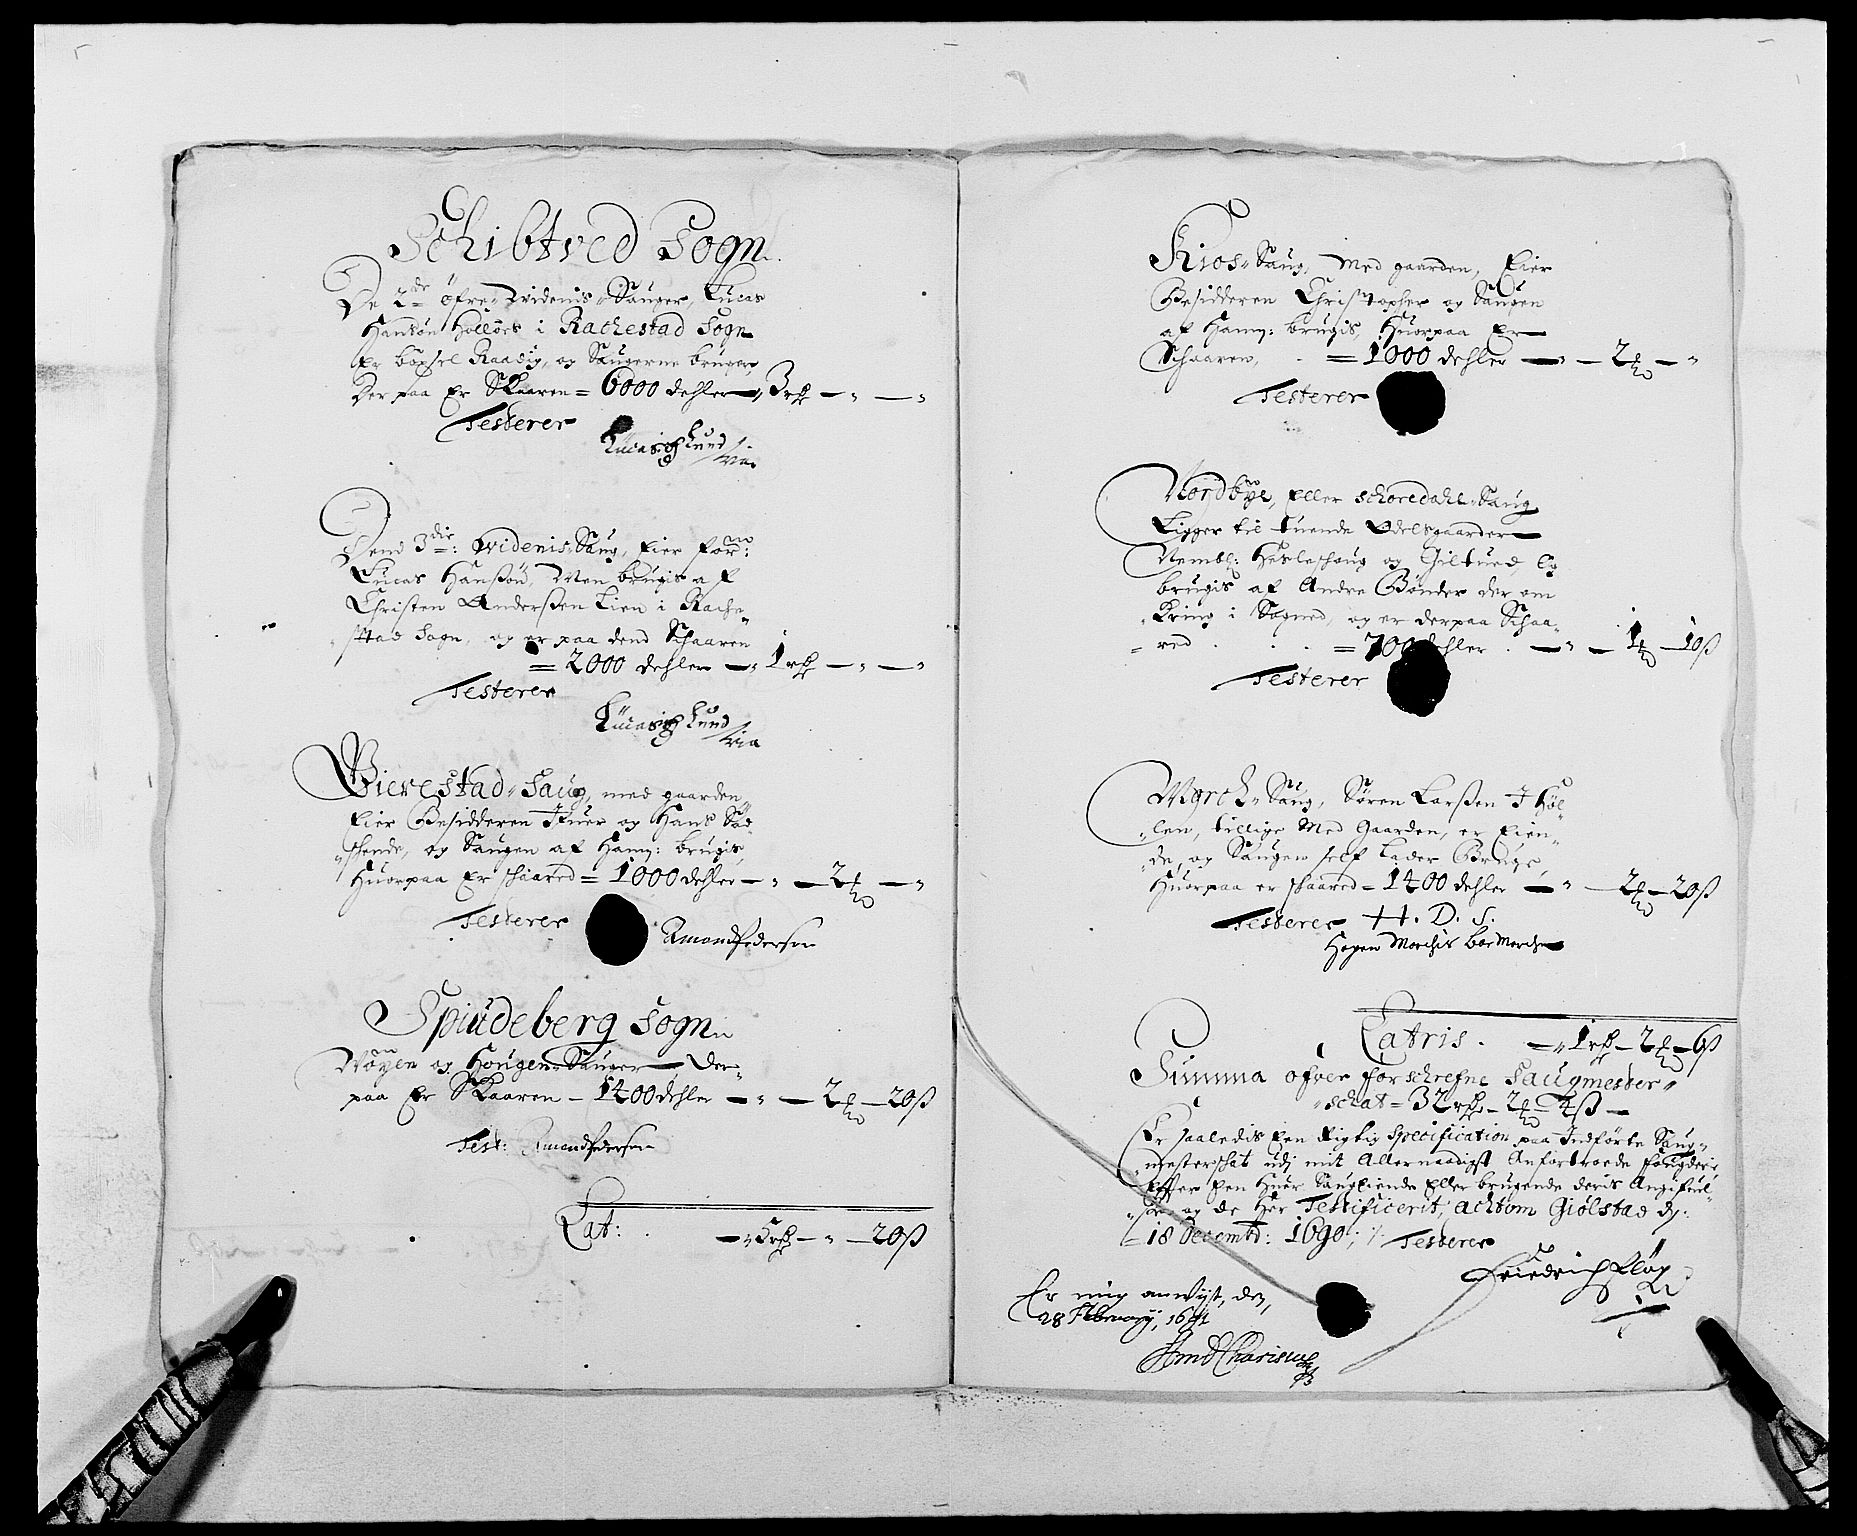 Schibtved Sogn.
De 2de öfre Widenis Sauger, Lucas
Hansön Hollöes i Rachestad Sogn
Er böxsel Raadig, og Saugerne bruger,
Der paa Er Skaaren = 6000 dehler – 3 rß – " – "
Testerer
Lucas Lund
Dend 3die: Widenis Saug, Eier for:
Lucas Hanßön, Men brugis af
Christen Anderßen Lien i Rache-
stad Sogn, og er paa dend Schaaren
= 2000 dehler – " 1 rß – " – "
Testerer
Lucas Lund
Bierestad Saug, med gaarden
Eier Besidderen Ifuer og Hans Sød-
schende, og Saugen af Hann: brugis,
Huorpaa Er schaared = 1000 dehler – " – 2 – "
Testerer
Amond Pederson
Spiudeberg Sogn
Wöyen og Hougen Sauger – Der-
paa Er Skaaren – 1400 dehler – " – 2 – 20 ß
Test: Amond Pederson
Lat: – " 5 rß – " – 20 ß
Kios Saug, Med gaarden, Eier
Besidderen Christopher og Saugen
af Hann: brugis, Huorpaa Er
Schaaren, = 1000 dehler – " – 2 – "
Testerer
Nordbye, Eller Schoredahl Saug
Ligger til tuende Odelsgaarder
Nembl: Hesleschoug og Giltued, Og
brugis af Andre Bönder der om
Kring i Sogned, og er derpaa Schaa-
red = 700 dehler – " – 1 – 10 ß
Testerer
Mörch Saug, Sören Larßen I Höl-
len, tillige Med Gaarden, er Eien-
de, og Saugen self Lader Bruge,
Huorpaa er schaared = 1400 dehler – " – 2 – 20 ß
Testerer H. D. S.
Hagen
Latris – " 1 rß – 2 – 6 ß
Summa ofver forschrefne Saugmester
schat = 32 rß – 2 – 4 ß –
Er saaledis Een Rigtig Specification paa Indförte Saug-
mesterschat udj mit Allernaadigst Anfortroede fougderie
Efter Een Huer Saugeiende Eller brugende deris Angifuel-
se og de Her Testificerit, Achtom Giölstad dj:
18 Decembr: 1690 ;/: Testerer
Friedrich
Er mig anvijst, den,
28 Februarij, 1691